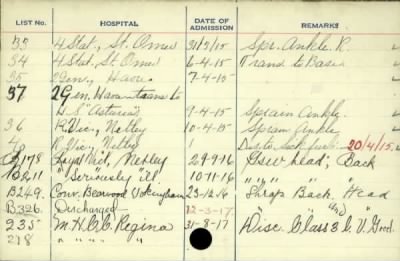 LIST NO. HOSPITAL DATE OF ADMISSION REMARKS
33 4 Stat., St. Omer 31/3/15 Spr. Ankle R.
34 4 Stat., St. Omer 6-4-15 Trans to Base
35 2 Gen., Havre 7-4-15
37 2 Gen. Havre trans to
H.S. "Asturias" 9-4-15 Sprain Ankle
36 R. Vic., Netley 10-4-15 Sprain Ankle
R. Vic., Netley 20/4/15
B178 Royal Vict, Netley 29-9-16 Gsw head, Back
B211 " "Seriously ill" 10-11-16 " " "
B249. Conv. Bearwood Wokingham 23-12-16 Shrap Back, Head
B326. Discharged 12-3-17 " " Hd
235 M.H.C.C. Regina 31-8-17 Disc. Class 3 C.V. Good.
218 " " " "